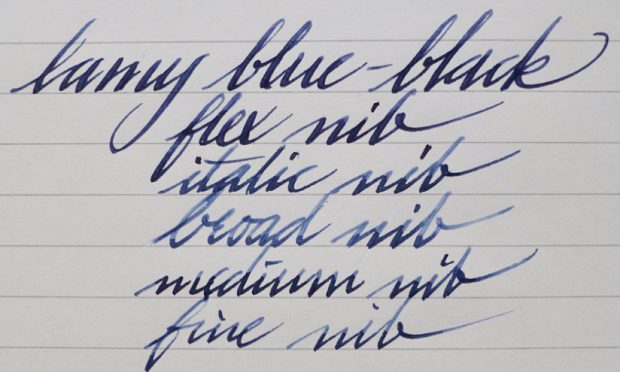 lamy blue-black
flex nib
italic nib
broad nib
medium nib
fine nib